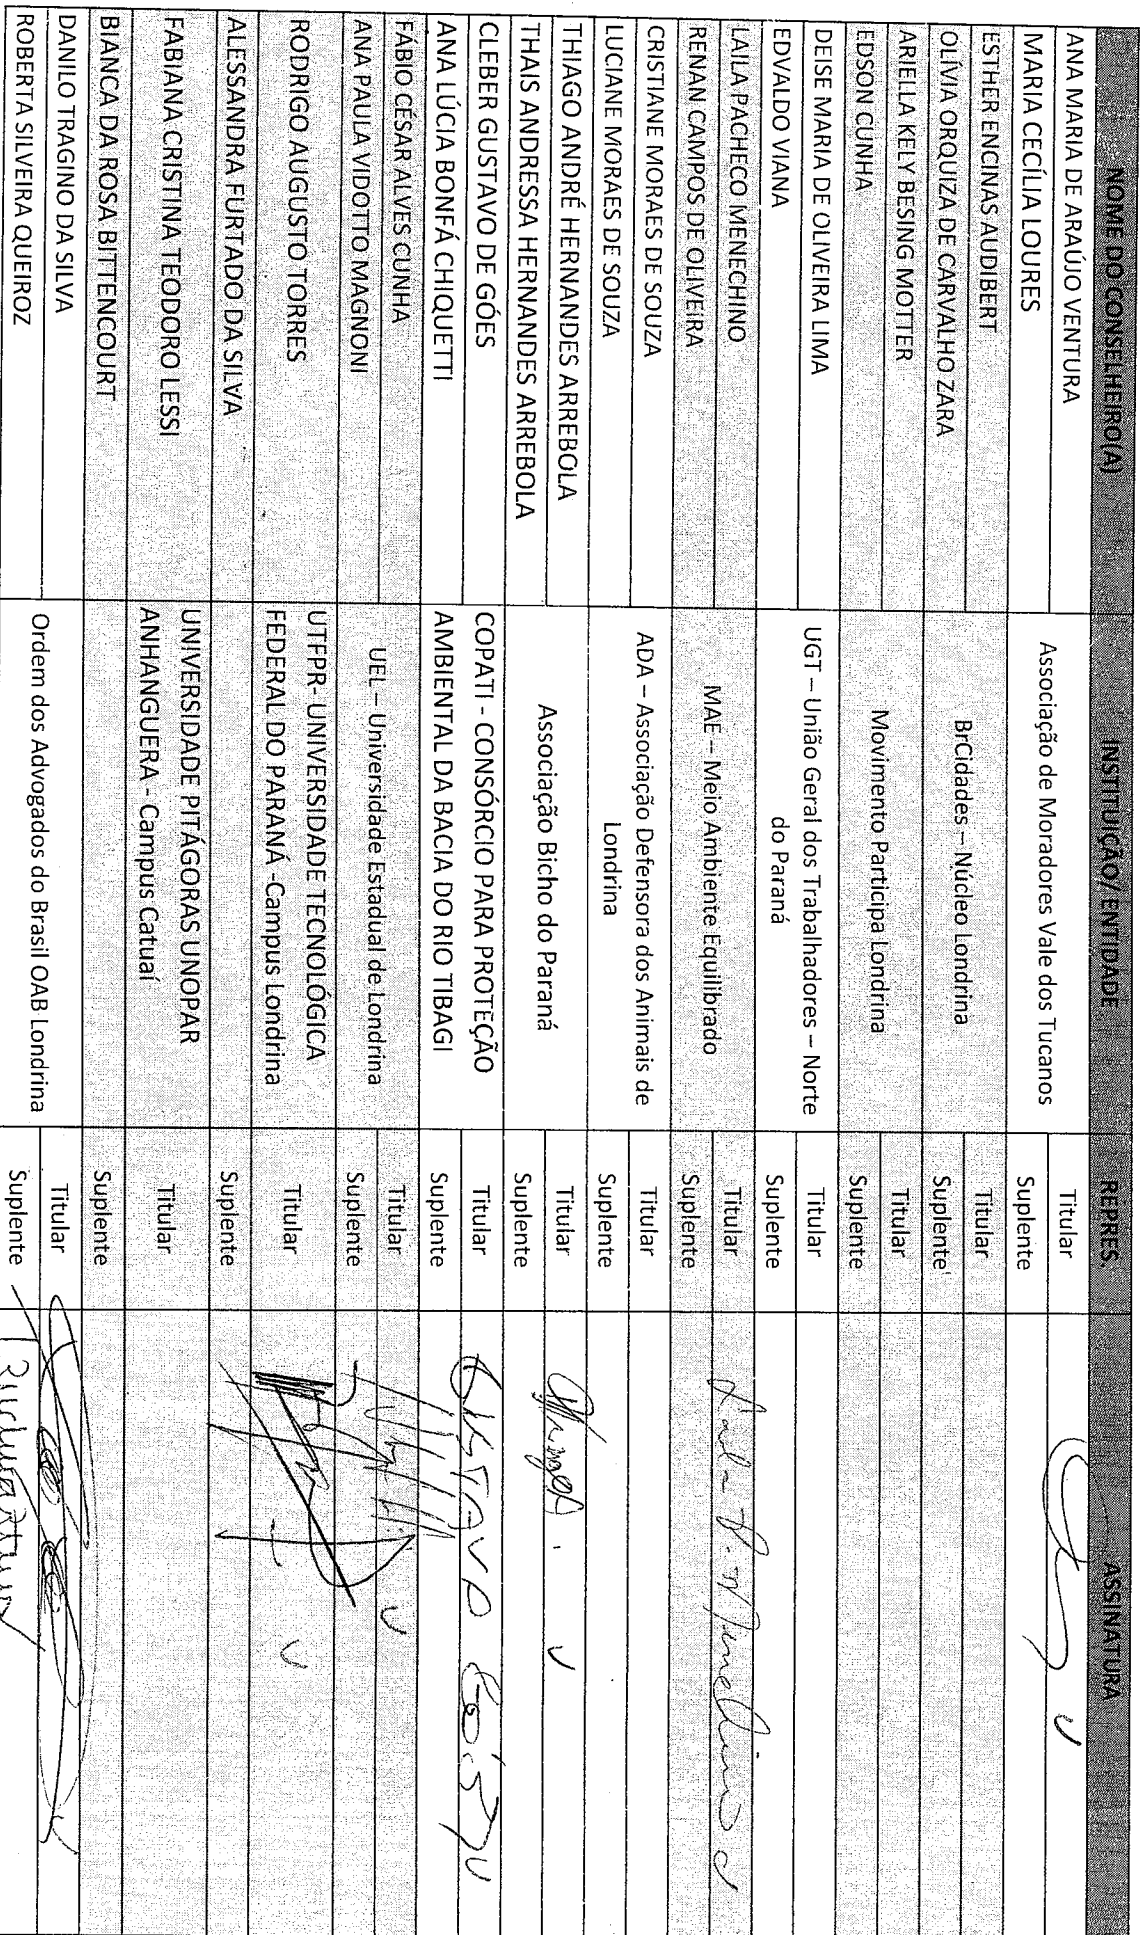 NOME DO CONSELHEIRO(A) INSTITUIÇÃO/ ENTIDADE REPRES. ASSINATURA
ANA MARIA DE ARAÚJO VENTURA Associação de Moradores Vale dos Tucanos Titular
MARIA CECÍLIA LOURES Suplente
ESTHER ENCINAS AUDIBERT BrCidades – Núcleo Londrina Titular
OLÍVIA ORQUIZA DE CARVALHO ZARA Suplente
ARIELLA KELY BESING MOTTER Movimento Participa Londrina Titular
EDSON CUNHA Suplente
DEISE MARIA DE OLIVEIRA LIMA UGT – União Geral dos Trabalhadores – Norte Titular
EDVALDO VIANA do Paraná Suplente
LAILA PACHECO MENECHINO MAE – Meio Ambiente Equilibrado Titular Laila P. Menechino
RENAN CAMPOS DE OLIVEIRA Suplente
CRISTIANE MORAES DE SOUZA ADA – Associação Defensora dos Animais de Titular
LUCIANE MORAES DE SOUZA Londrina Suplente
THIAGO ANDRÉ HERNANDES ARREBOLA Associação Bicho do Paraná Titular
THAIS ANDRESSA HERNANDES ARREBOLA Suplente
CLEBER GUSTAVO DE GÓES COPATI - CONSÓRCIO PARA PROTEÇÃO Titular GUSTAVO GÓES
ANA LÚCIA BONFÁ CHIQUETTI AMBIENTAL DA BACIA DO RIO TIBAGI Suplente
FÁBIO CÉSAR ALVES CUNHA UEL – Universidade Estadual de Londrina Titular
ANA PAULA VIDOTTO MAGNONI Suplente
RODRIGO AUGUSTO TORRES UTFPR- UNIVERSIDADE TECNOLÓGICA Titular
FEDERAL DO PARANÁ -Campus Londrina
ALESSANDRA FURTADO DA SILVA Suplente
FABIANA CRISTINA TEODORO LESSI UNIVERSIDADE PITÁGORAS UNOPAR Titular
ANHANGUERA - Campus Catuaí
BIANCA DA ROSA BITTENCOURT Suplente
DANILO TRAGINO DA SILVA Ordem dos Advogados do Brasil OAB Londrina Titular
ROBERTA SILVEIRA QUEIROZ Suplente